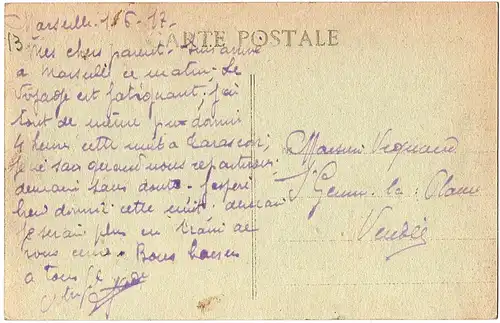 Marseille 1/6-17-
13
CARTE POSTALE
Mes chers parents - suis arrivé
à Marseille ce matin. Le
voyage est fatiguant. J'ai
tout de même pu dormi
4 heures cette nuit à Tarascon,
je ne sais quand nous repartirons
demain sans doute. J'espère
bien dormir cette nuit. demain
je serai plus en train de
vous
Bons baisers
à tous
Monsieur
St Gemme la Plaine
Vendée